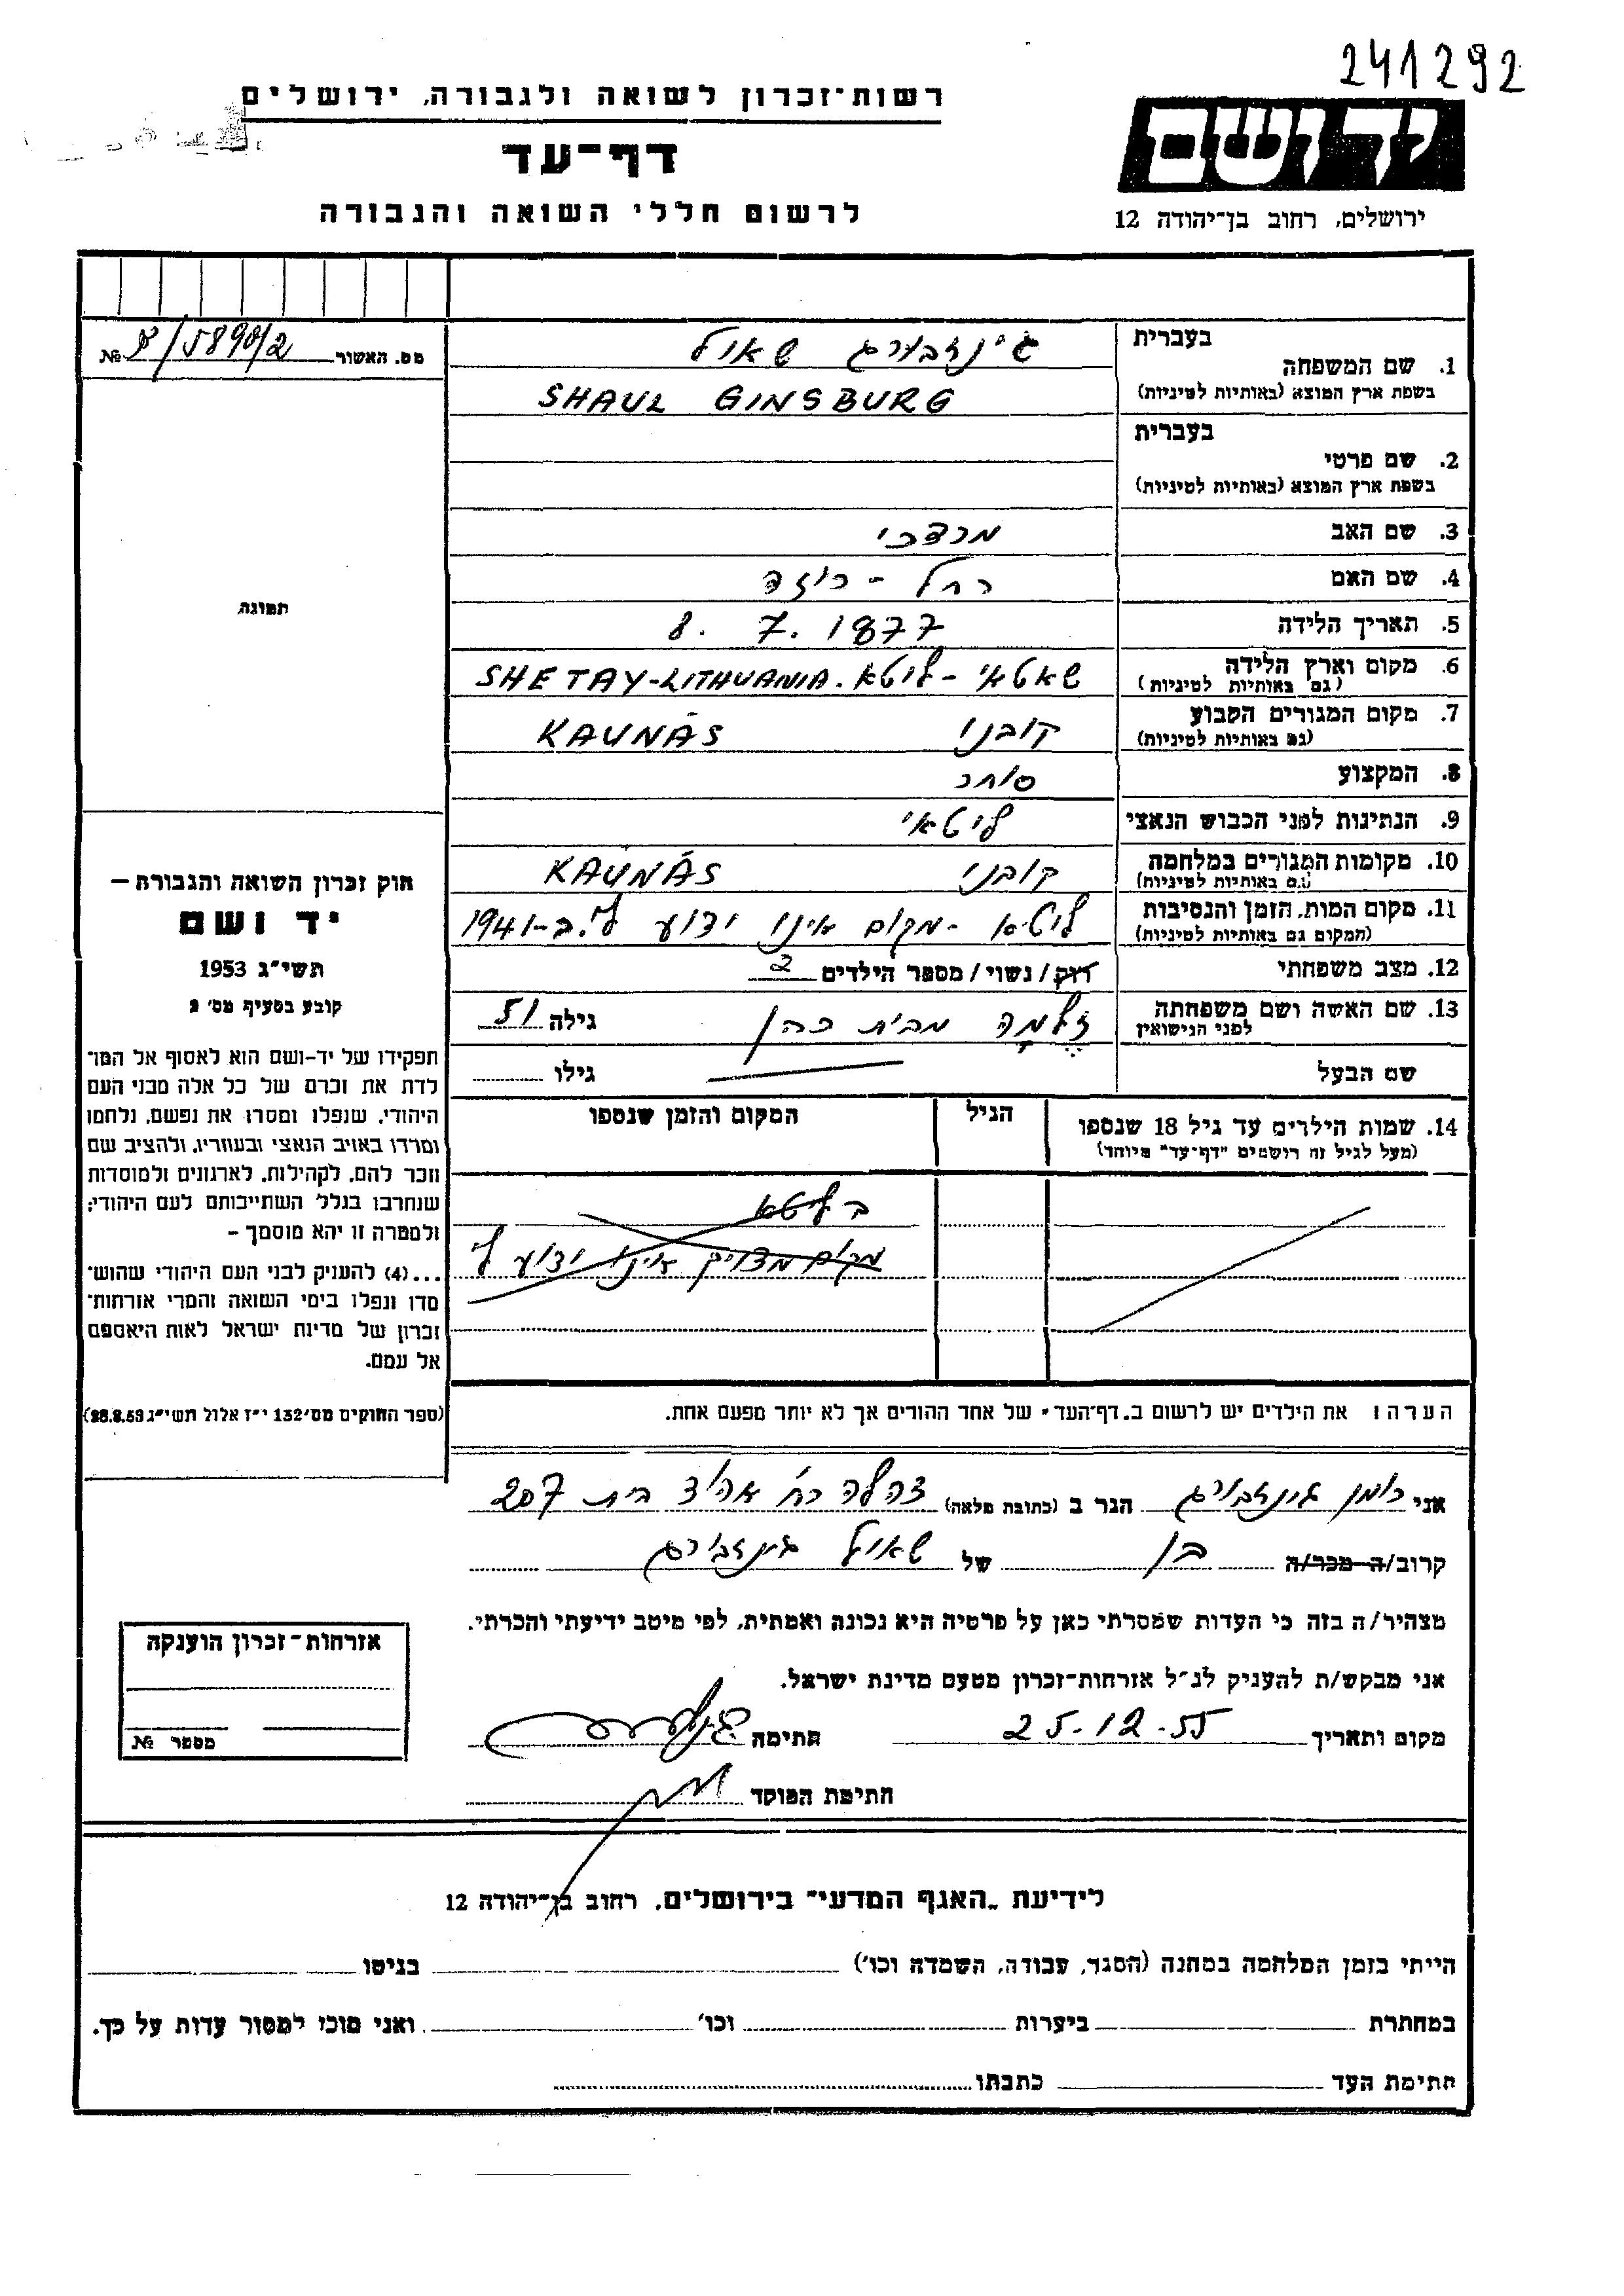 241292
רשות-זכרון לשואה ולגבורה, ירושלים
יד ושם
דף-עד
לרשום חללי השואה והגבורה
ירושלים, רחוב בן-יהודה 12
מס. האשור № 5890/2
בעברית
1. שם המשפחה גינזבורג שאול
בשפת ארץ המוצא (באותיות לטיניות) SHAUL GINSBURG
בעברית
2. שם פרטי
בשפת ארץ המוצא (באותיות לטיניות)
3. שם האב מרדכי
4. שם האם רחל - רוזה
5. תאריך הלידה 8. 7. 1877
6. מקום וארץ הלידה שאטאי - ליטא. SHETAY-LITHUANIA
(גם באותיות לטיניות)
7. מקום המגורים הקבוע קובנו KAUNAS
(גם באותיות לטיניות)
8. המקצוע סוחר
9. הנתינות לפני הכבוש הנאצי ליטאי
10. מקומות המגורים במלחמה קובנו KAUNAS
(גם באותיות לטיניות)
11. מקום המות, הזמן והנסיבות ליטא - מקום אינו ידוע לי. ב-1941
(המקום גם באותיות לטיניות)
12. מצב משפחתי רווק / נשוי / מספר הילדים 2
13. שם האשה ושם משפחתה לפני הנישואין זלמה מבית כהן גילה 51
שם הבעל גילו
14. שמות הילדים עד גיל 18 שנספו הגיל המקום והזמן שנספו
(מעל לגיל זה רושמים "דף-עד" מיוחד)
בליטא
מקום מדויק אינו ידוע לי
הערה: את הילדים יש לרשום ב"דף-העד" של אחד ההורים אך לא יותר מפעם אחת.
תמונה
חוק זכרון השואה והגבורה –
יד ושם
תשי"ג 1953
קובע בסעיף מס' 2
תפקידו של יד-ושם הוא לאסוף אל המו־
לדת את זכרם של כל אלה מבני העם
היהודי, שנפלו ומסרו את נפשם, נלחמו
ומרדו באויב הנאצי ובעוזריו, ולהציב שם
וזכר להם, לקהילות, לארגונים ולמוסדות
שנחרבו בגלל השתייכותם לעם היהודי;
ולמטרה זו יהא מוסמך –
...(4) להעניק לבני העם היהודי שהוש־
מדו ונפלו בימי השואה והמרי אזרחות־
זכרון של מדינת ישראל לאות היאספם
אל עמם.
(ספר החוקים מס' 132 י"ז אלול תשי"ג 28.8.53)
אני רומן גינזבורג הגר ב (כתובת מלאה) צהלה רח' בית 207
קרוב/ה מכר/ה בן של שאול גינזבורג
מצהיר/ה בזה כי העדות שמסרתי כאן על פרטיה היא נכונה ואמתית, לפי מיטב ידיעתי והכרתי.
אני מבקש/ת להעניק לנ"ל אזרחות-זכרון מטעם מדינת ישראל.
מקום ותאריך 25-12-55 חתימה
חתימת הפוקד
אזרחות-זכרון הוענקה
מספר №
לידיעת "האגף המדעי" בירושלים, רחוב בן-יהודה 12
הייתי בזמן המלחמה במחנה (הסגר, עבודה, השמדה וכו') בגיטו
במחתרת ביערות וכו' ואני מוכן למסור עדות על כך.
חתימת העד כתבתו